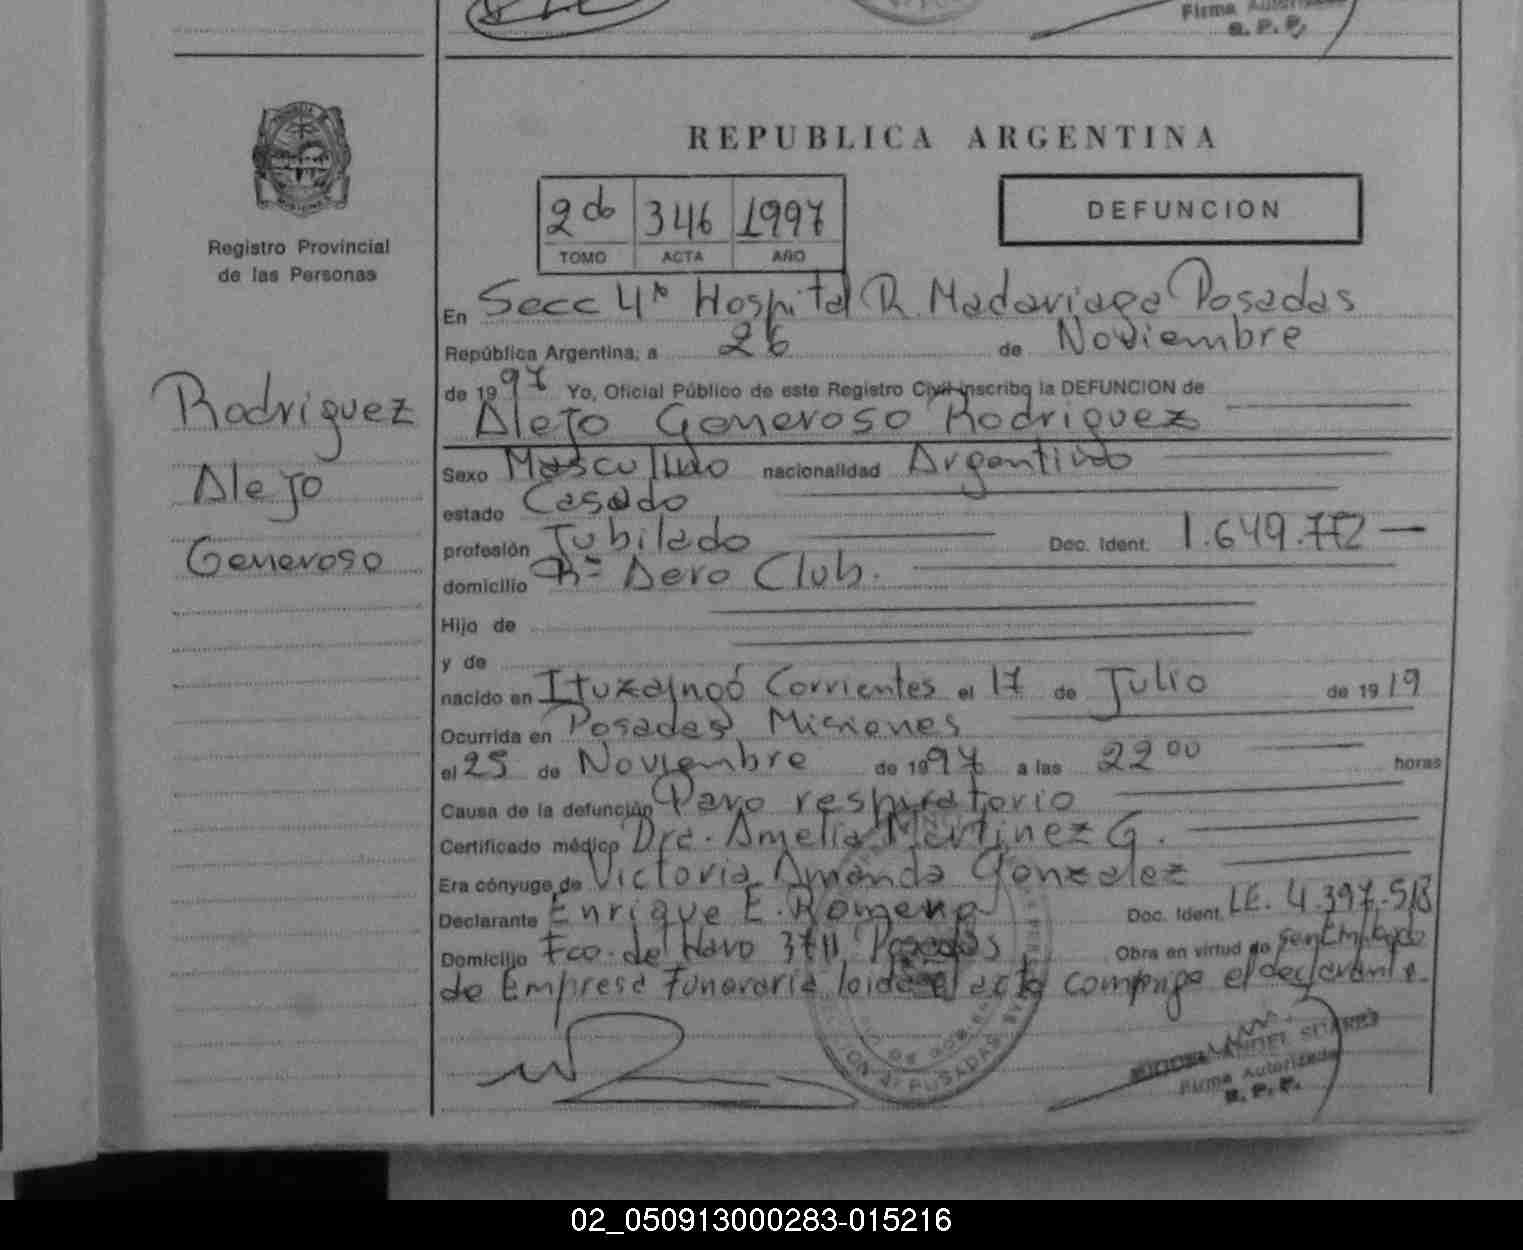 Firma Autorizada
R. P. P.
REPUBLICA ARGENTINA
2do 346 1997
TOMO ACTA AÑO
DEFUNCION
Registro Provincial
de las Personas
Rodriguez
Alejo
Generoso
En Secc 4ª Hospital R. Madariaga Posadas
República Argentina, a 26 de Noviembre
de 1997 Yo, Oficial Público de este Registro Civil inscribo la DEFUNCION de
Alejo Generoso Rodriguez
Sexo Masculino nacionalidad Argentino
estado Casado
profesión Jubilado Doc. Ident. 1.649.772
domicilio Bº Aero Club.
Hijo de
y de
nacido en Ituzaingó Corrientes el 17 de Julio de 1919
Ocurrida en Posadas Misiones
el 25 de Noviembre de 1997 a las 22 00 horas
Causa de la defunción Paro respiratorio
Certificado médico Dra. Amelia Martinez G.
Era cónyuge de Victoria Amanda Gonzalez
Declarante Enrique E. Romero Doc. Ident. LE. 4.397.513
Domicilio Fco. de Haro 3711 Posadas Obra en virtud de
de Empresa funeraria leida el acta compaige el declarante.
Firma Autorizada
R. P. P.
02_050913000283-015216